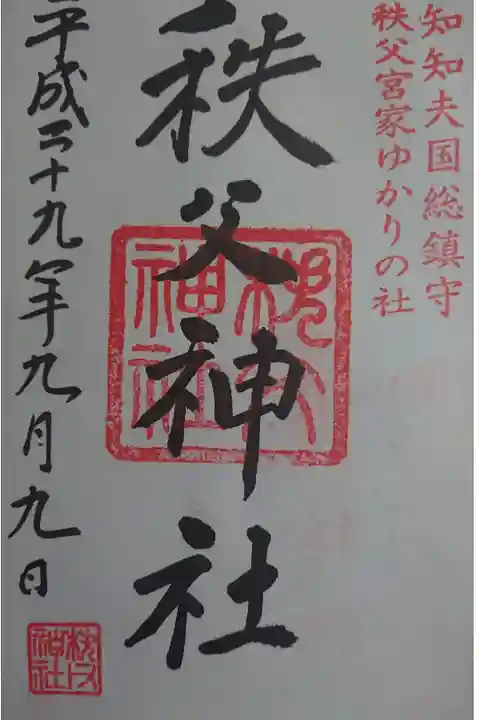 知知夫国総鎮守
秩父宮家ゆかりの社
秩父神社
秩父
神社
平成二十九年九月九日
秩父
神社